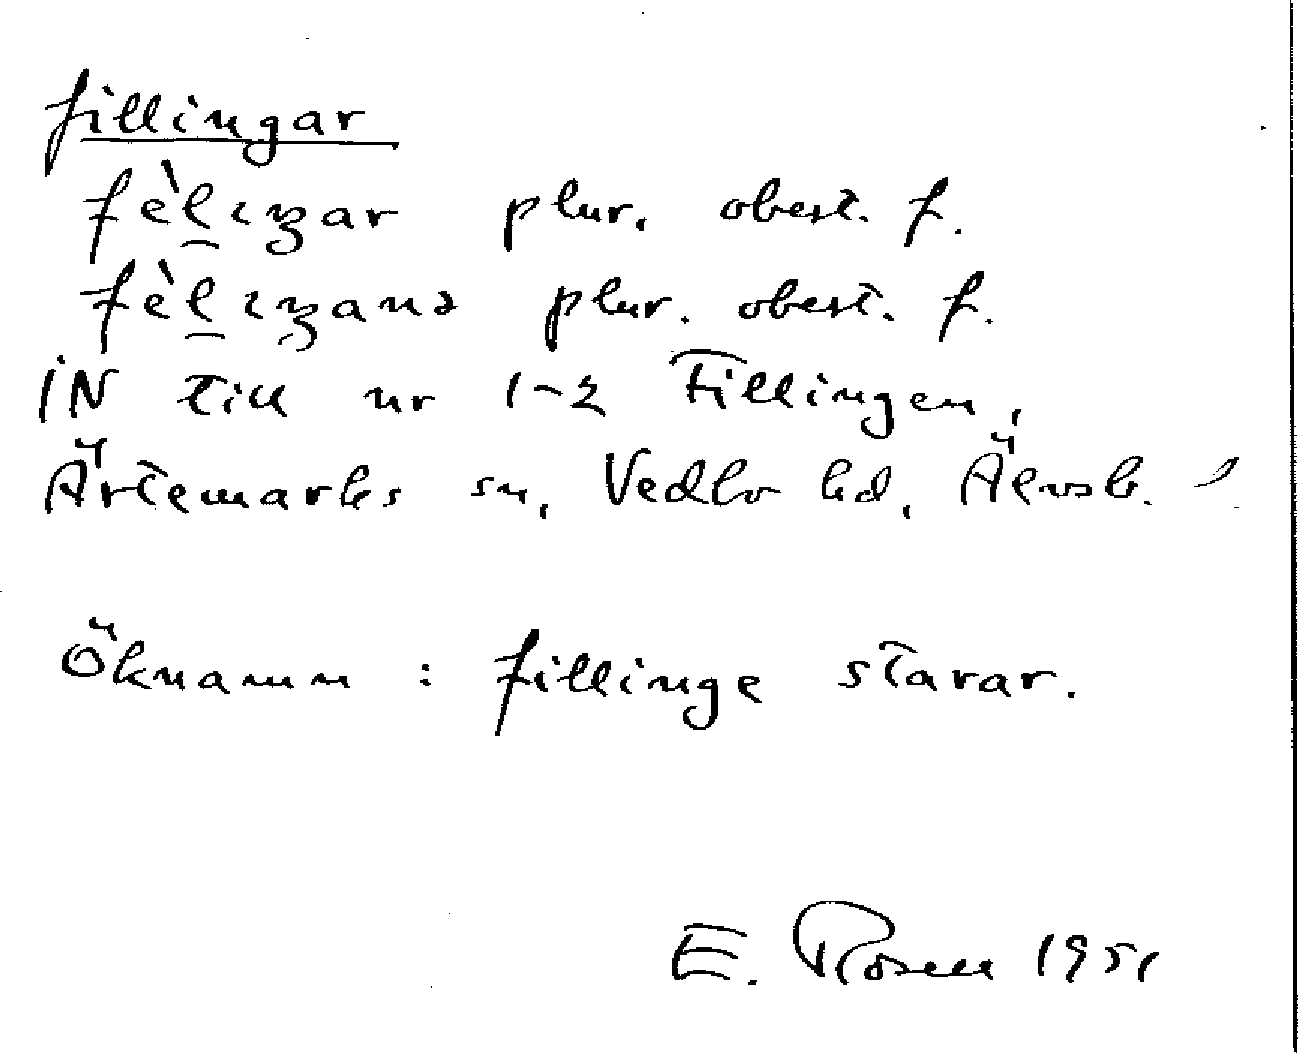 fillingar
fèl̮ıŋar plur. obest. f.
fèl̮ıŋanə plur. obest. f.
IN till nr 1-2 Fillingen,
Ärtemarks sn, Vedbo hd, Älvsb. l
Öknamn : fillinge starar.
E. Rosell 1951